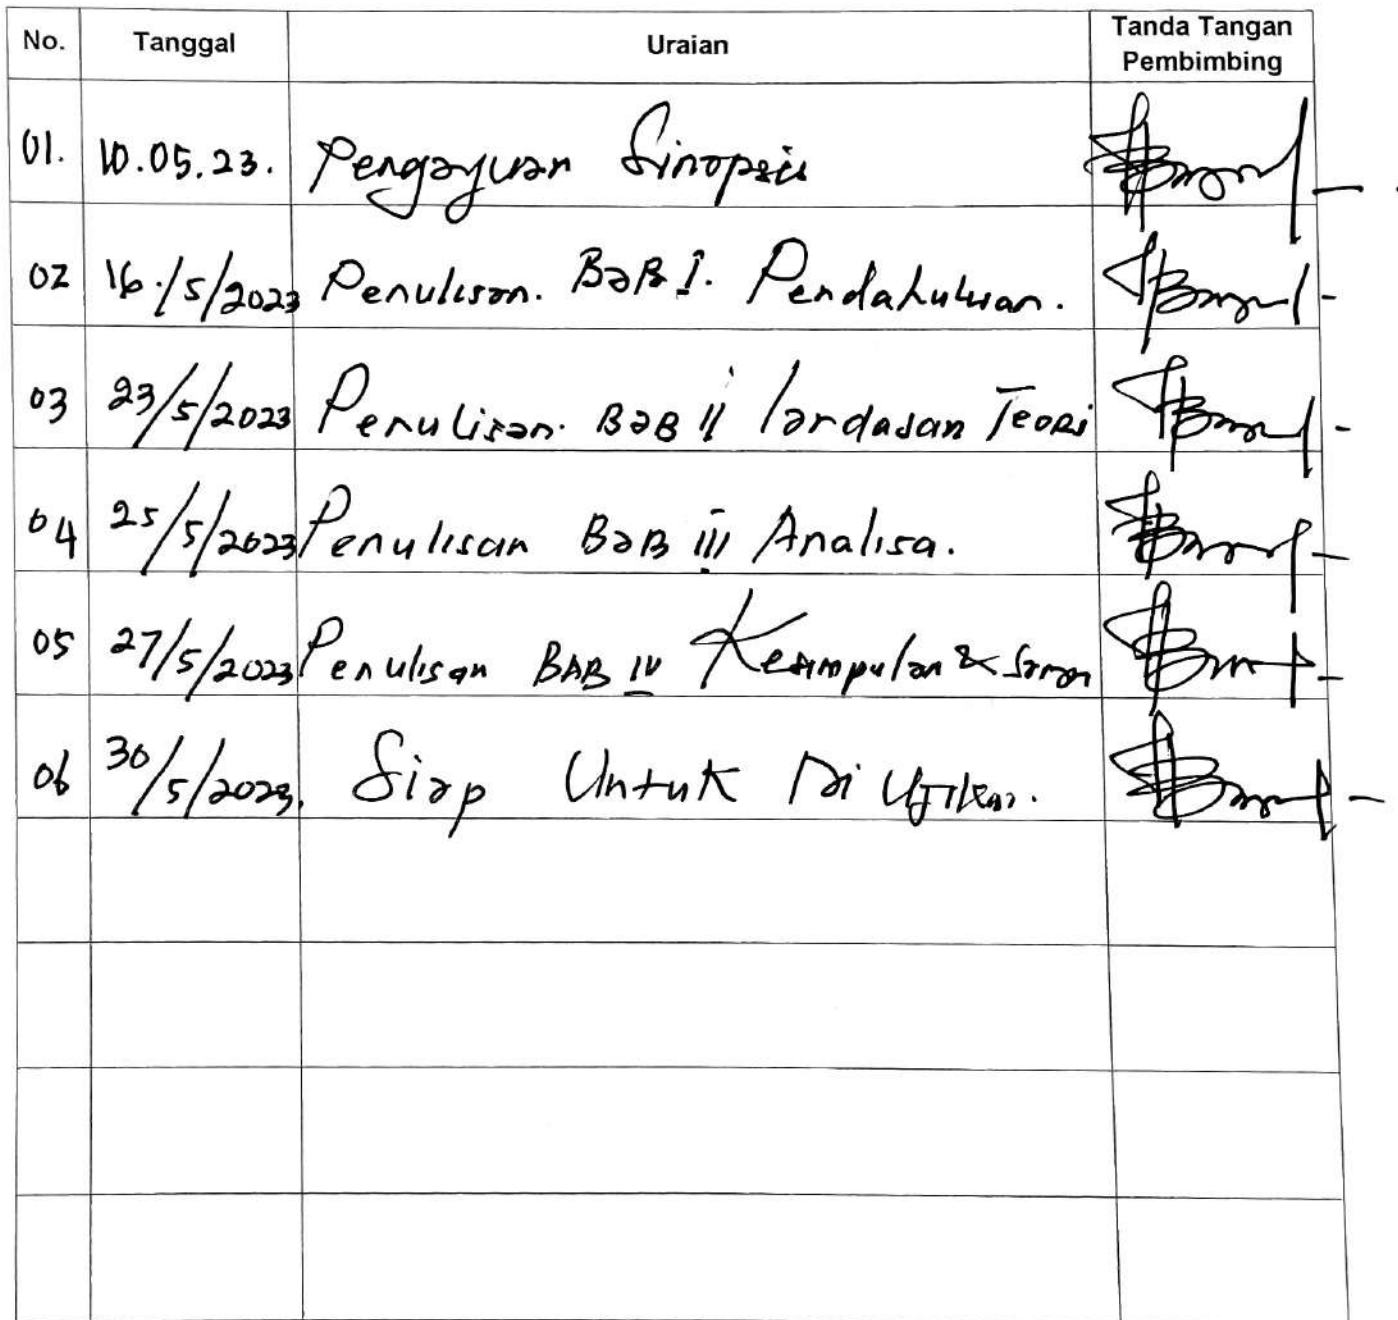 No. Tanggal Uraian Tanda Tangan Pembimbing
01. 10.05.23. Pengajuan Sinopsis
02 16./5/2023 Penulisan. BaB I. Pendahuluan.
03 23/5/2023 Penulisan. BaB II landasan Teori
04 25/5/2023 Penulisan BaB III Analisa.
05 27/5/2023 Penulisan BAB IV Kesimpulan & Saran
06 30/5/2023. Siap Untuk Di Ujikan.